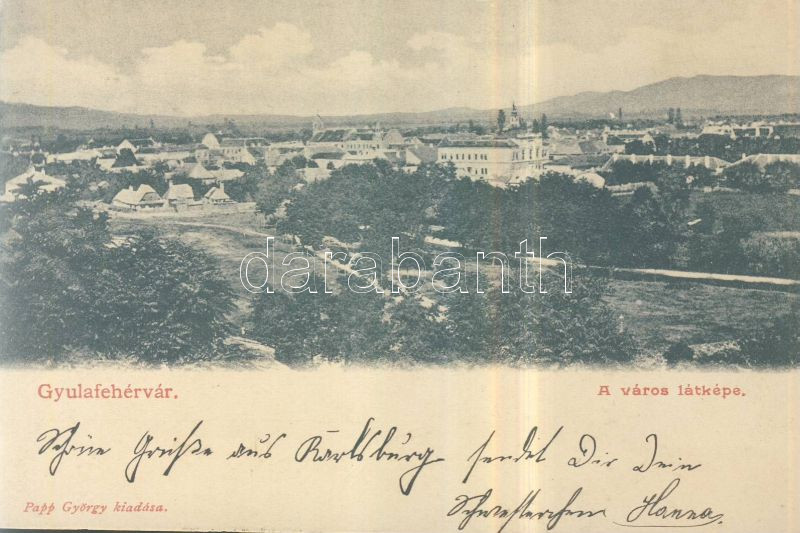 darabanth
Gyulafehérvár.
A város látképe.
Schöne Grüße aus Karlsburg sendet Dir Dein
Schwesterchen Hanna
Papp György kiadása.